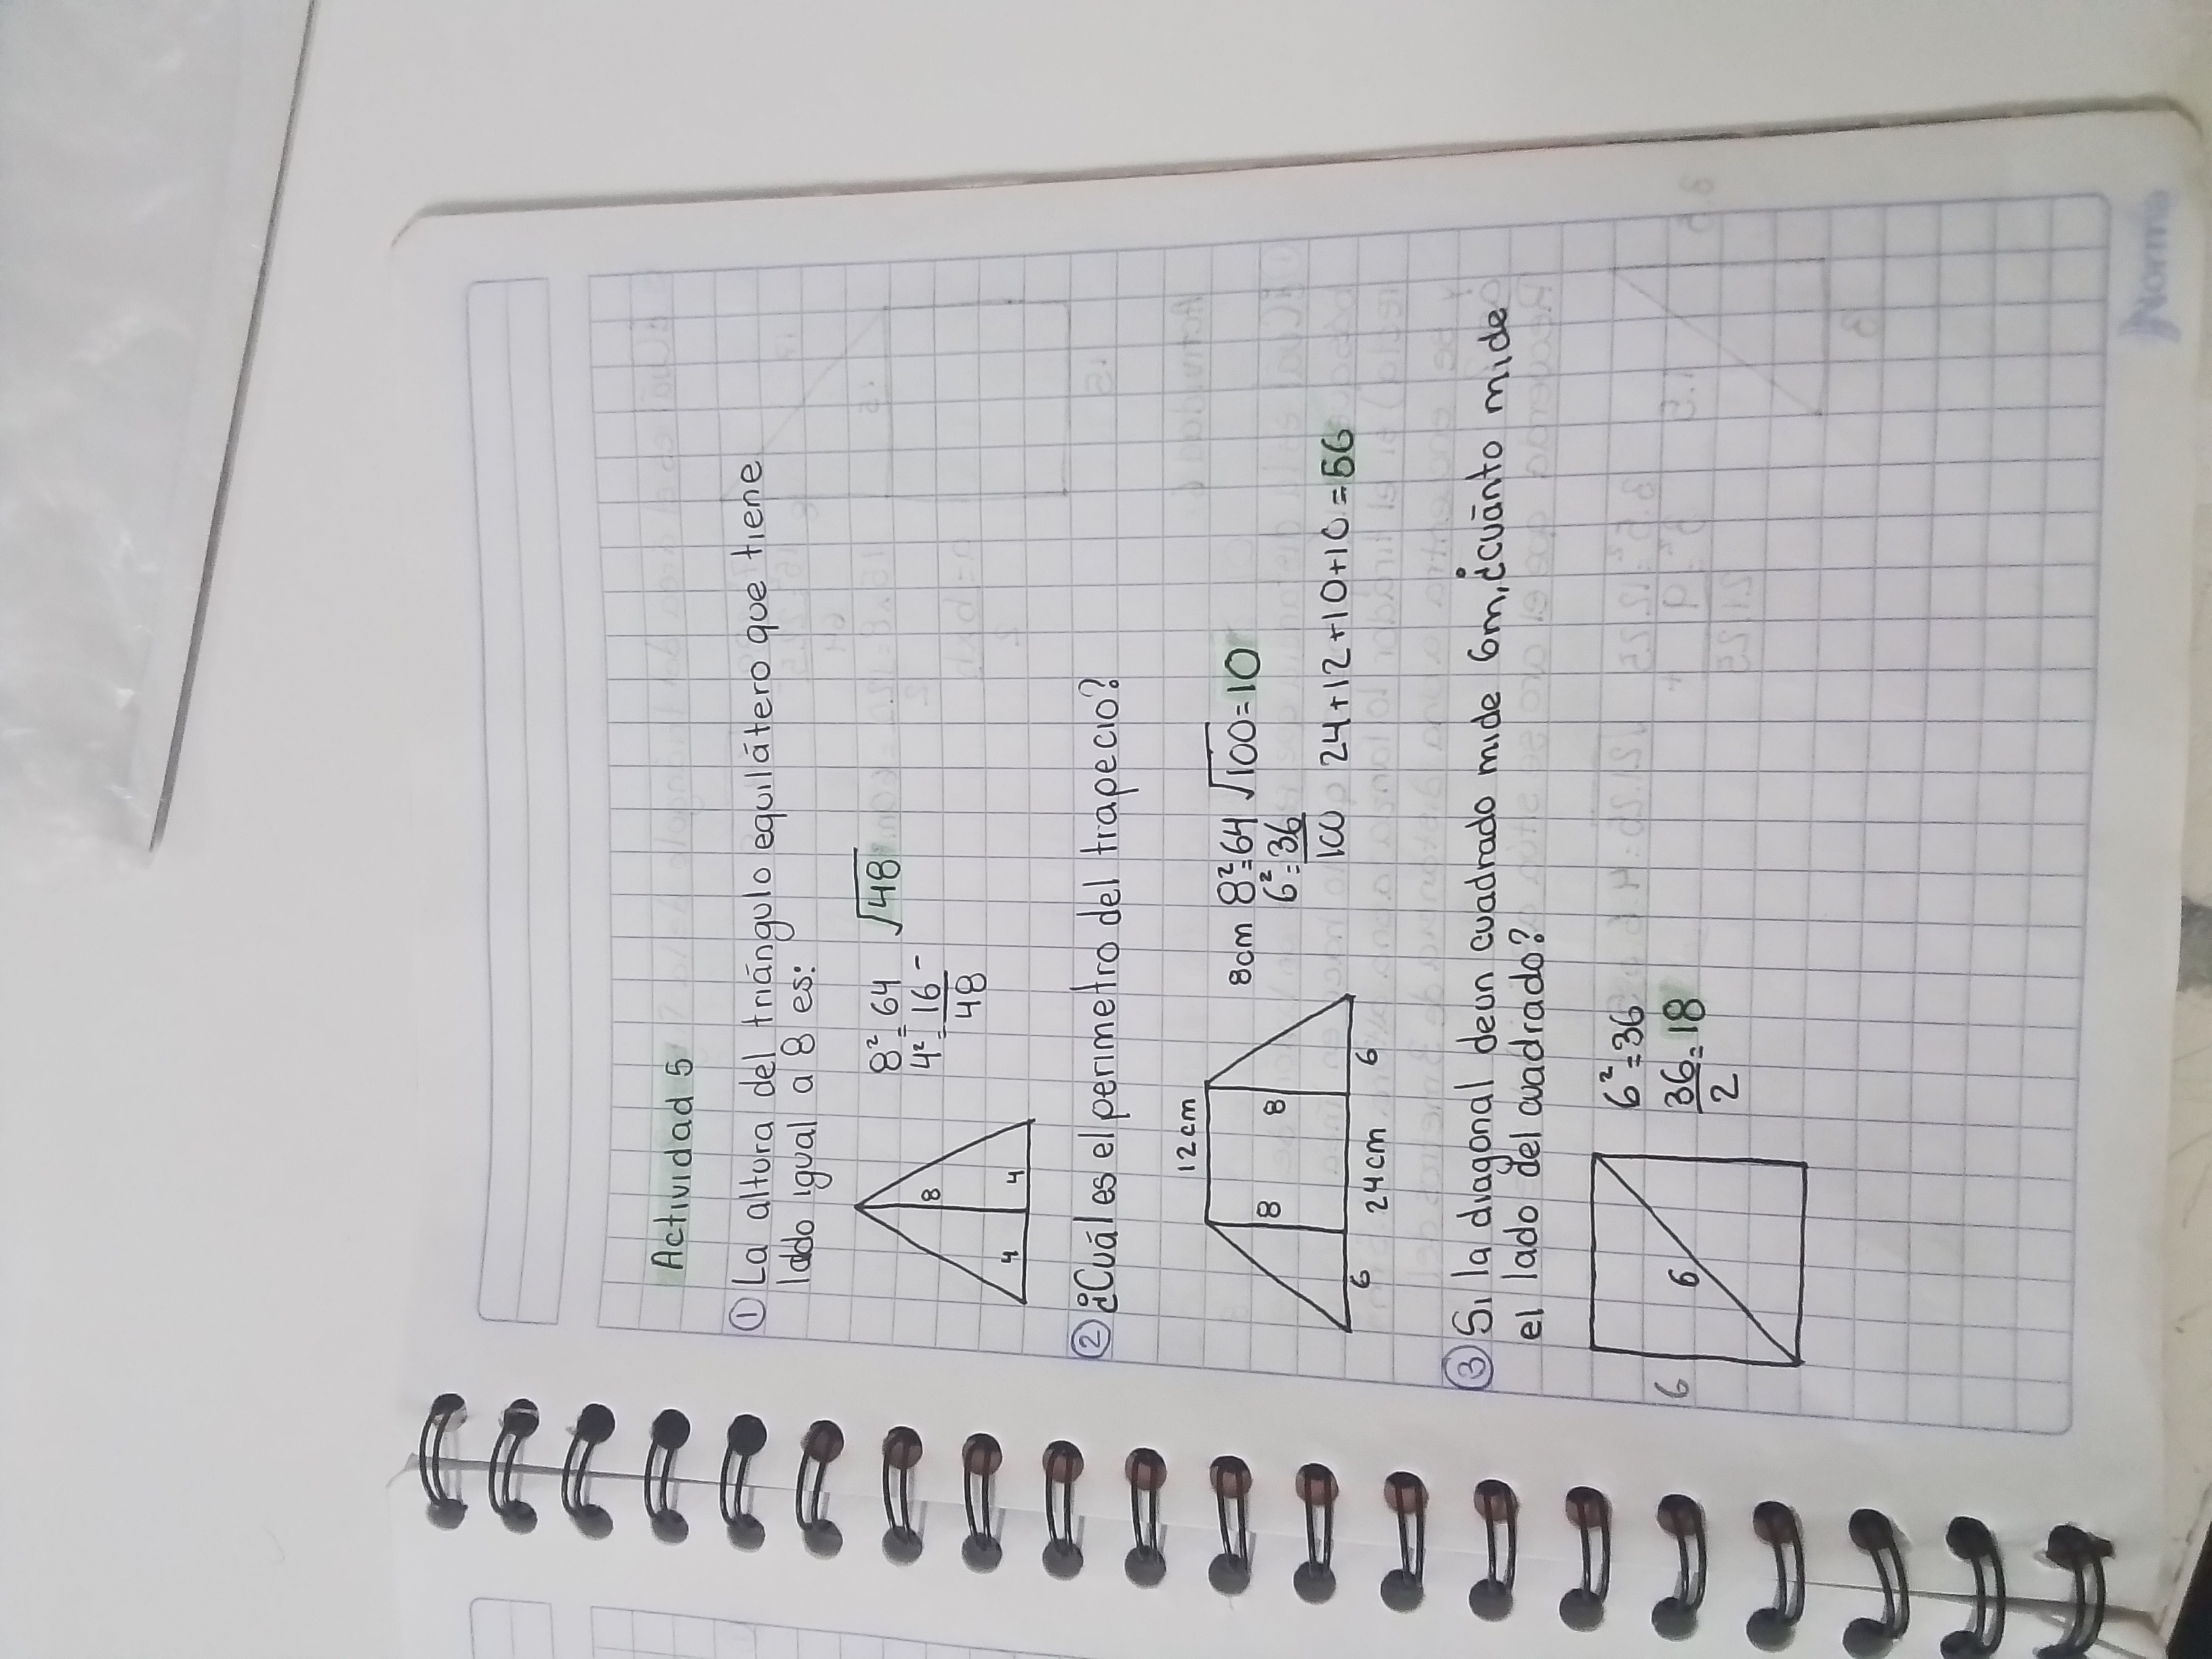 Actividad 5
① La altura del triángulo equilátero que tiene
lado igual a 8 es:
8² = 64 √48
4² = 16 -
48
8
4 4
② ¿Cuál es el perimetro del trapecio?
12cm
8 8
6 24cm 6
8cm 8² = 64 √100 = 10
6² = 36
100 24+12+10+10=56
③ Si la diagonal de un cuadrado mide 6m, ¿cuánto mide
el lado del cuadrado?
6 6
6² = 36
36 = 18
2
Norma